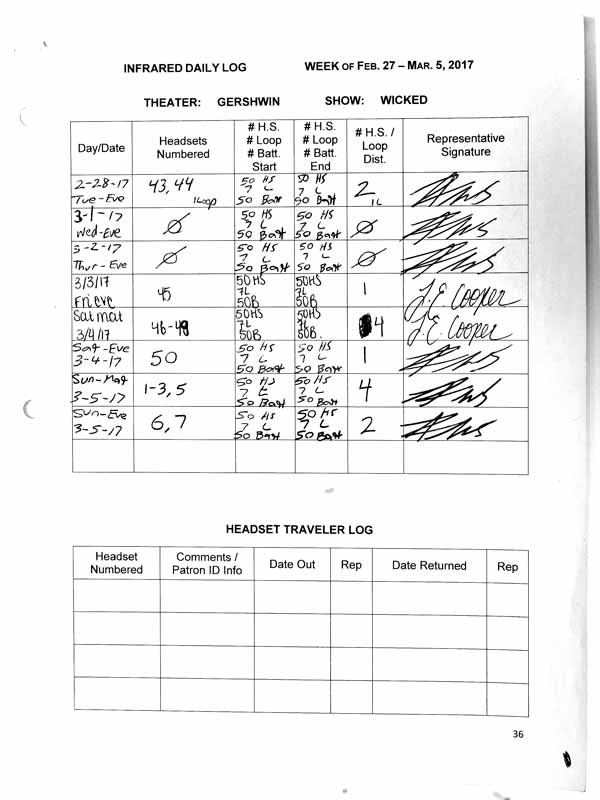 INFRARED DAILY LOG WEEK OF FEB. 27 – MAR. 5, 2017
THEATER: GERSHWIN SHOW: WICKED
Day/Date
Headsets
Numbered
# H.S.
# Loop
# Batt.
Start
# H.S.
# Loop
# Batt.
End
# H.S. /
Loop
Dist.
Representative
Signature
2-28-17
Tue-Eve
43, 44
1Loop
50 HS
7 L
50 Batt
50 HS
7 L
50 Batt
2
1L
3-1-17
Wed-Eve
Ø
50 HS
7 L
50 Batt
50 HS
7 L
50 Batt
Ø
3-2-17
Thur-Eve
Ø
50 HS
7 L
50 Batt
50 HS
7 L
50 Batt
Ø
3/3/17
Fri eve
45
50HS
7L
50B
50HS
7L
50B
1
J.E. Cooper
Sat mat
3/4/17
46-49
50HS
7L
50B
50HS
7L
50B.
4
J.E. Cooper
Sat-Eve
3-4-17
50
50 HS
7 L
50 Batt
50 HS
7 L
50 Batt
1
Sun-Mat
3-5-17
1-3, 5
50 HS
7 L
50 Batt
50 HS
7 L
50 Batt
4
Sun-Eve
3-5-17
6, 7
50 HS
7 L
50 Batt
50 HS
7 L
50 Batt
2
HEADSET TRAVELER LOG
Headset
Numbered
Comments /
Patron ID Info
Date Out
Rep
Date Returned
Rep
36